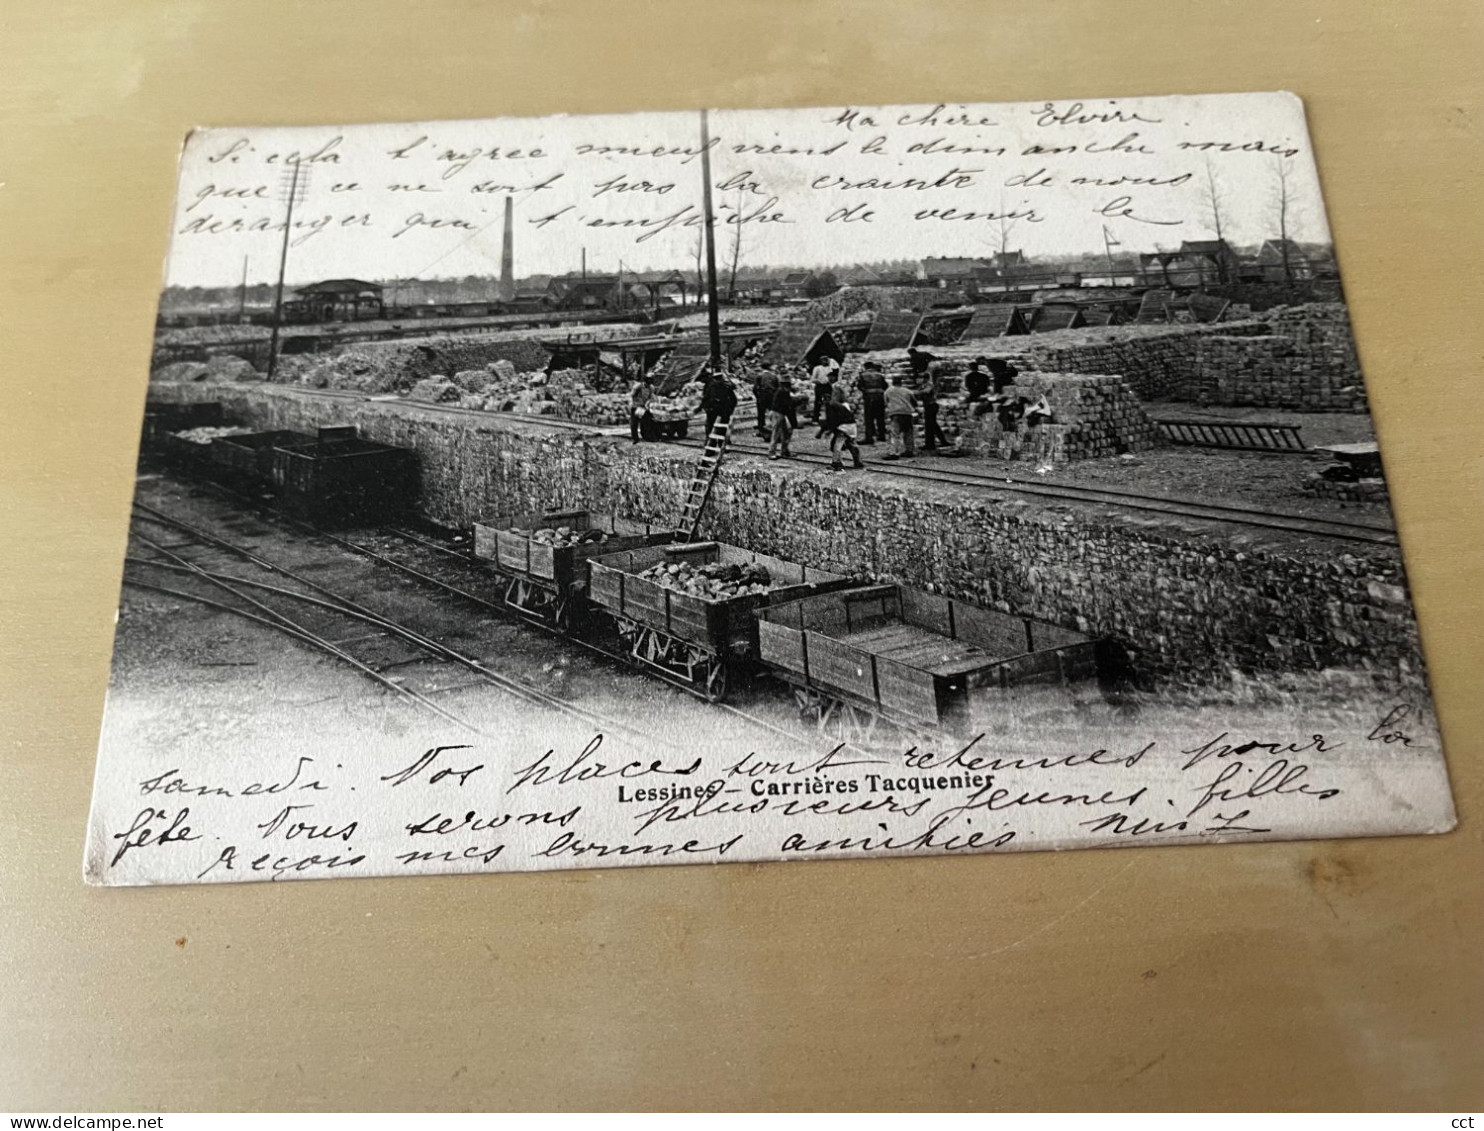 Ma chère Elvire.
Si cela t'agrée mieux viens le dimanche mais
que ce ne soit pas la crainte de nous
déranger qui t'empêche de venir le
samedi. Nos places sont retenues pour la
Lessines – Carrières Tacquenier
fête. Nous serons plusieurs jeunes filles
reçois mes bonnes amitiés
www.delcampe.net
cct